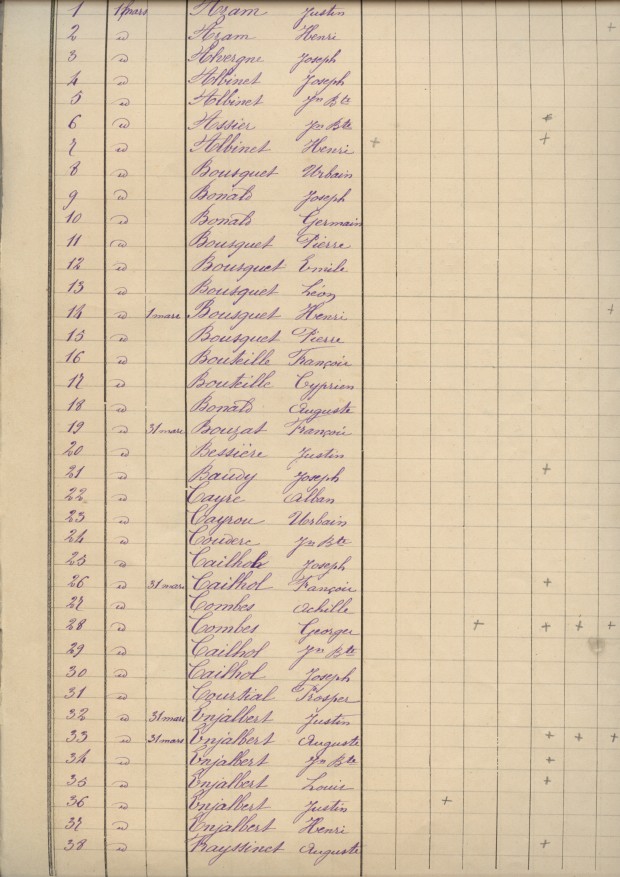 1 1 mars Azam Justin
2 " Azam Henri +
3 " Alvergne Joseph
4 " Albinet Joseph
5 " Albinet Jn Bte
6 " Assier Jn Bte +
7 " Albinet Henri + +
8 " Bousquet Urbain
9 " Bonald Joseph
10 " Bonald Germain
11 " Bousquet Pierre
12 " Bousquet Emile
13 " Bousquet Léon
14 " 1 mars Bousquet Henri +
15 " Bousquet Pierre
16 " Bouteille François
17 " Bouteille Cyprien
18 " Bonald Auguste
19 " 31 mars Bouzat François
20 " Bessière Justin
21 " Baudy Joseph +
22 " Cayre Alban
23 " Cayrou Urbain
24 " Couderc Jn Bte
25 " Cailhol Joseph
26 " 31 mars Cailhol François +
27 " Combes Achille
28 " Combes Georges + + + +
29 " Cailhol Jn Bte
30 " Cailhol Joseph
31 " Courtial Prosper
32 " 31 mars Enjalbert Justin
33 " 31 mars Enjalbert Auguste + + +
34 " Enjalbert Jn Bte +
35 " Enjalbert Louis +
36 " Enjalbert Justin +
37 " Enjalbert Henri
38 " Fayssinet Auguste +